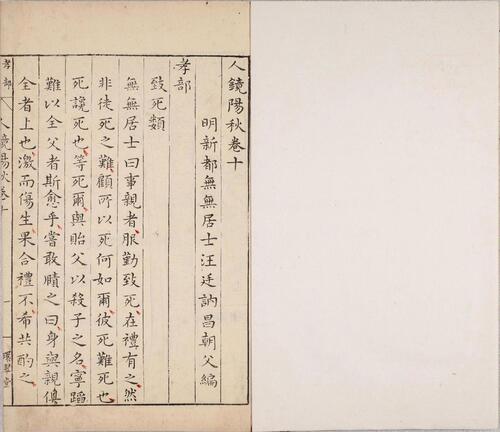 人鏡陽秋卷十
明新都無無居士汪廷訥昌朝父編
孝部
致死類
無無居士曰事親者服勤致死在禮有之然
非徒死之難顧所以死何如爾彼死難死也
死讒死也等死爾與貽父以殺子之名寧蹈
難以全父者斯愈乎嘗敢賾之曰身與親俱
全者上也激而傷生果合禮不希共酌之
孝部
人鏡陽秋卷十
一
環翠堂